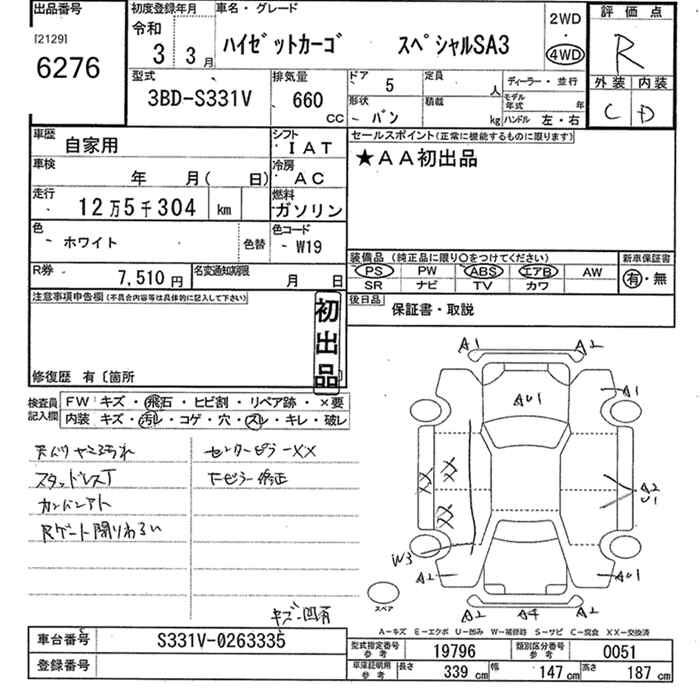 出品番号 初度登録年月 車名・グレード
[2129] 6276
令和 3年 3月
ハイゼットカーゴ スペシャルSA3
2WD・4WD
評価点
R
外装 内装
C D
型式 排気量 ドア 5 定員 人 ディーラー・並行
3BD-S331V 660 CC
形状 バン 積載 kg モデル年式 年 ハンドル 左・右
車歴 自家用 シフト IAT
セールスポイント(正常に機能するものに限ります)
★AA初出品
車検 年 月( 日) 冷房 AC
走行 12万5千304 km 燃料 ガソリン
色 ホワイト 色替 色コード W19
装備品 (純正品に限り〇をつけてください) 新車保証書
PS PW ABS エアB AW 有・無
SR ナビ TV カワ
R券 7,510円 名変通知期限 月 日
後日品 保証書・取説
注意事項申告欄(不具合内容等は具体的に記入して下さい)
初出品
修復歴 有〔箇所 〕
検査員記入欄 FW キズ・飛石・ヒビ割・リペア跡・×要
内装 キズ・汚レ・コゲ・穴・スレ・キレ・破レ
センターピラーXX
スタッドレスT
カンバンアト
Rゲート閉りわるい
キズ・凹有
A1 A2
AU1
A1
XX XX
XX
A2
U1
W3
A2 AU1
A2 A4 A2
スペア
A-キズ E-エクボ U-凹み W-補修跡 S-サビ C-腐食 XX-交換済
車台番号 S331V-0263335
登録番号
型式指定番号参考 19796 類別区分番号参考 0051
車庫証明用参考 長さ 339 cm 幅 147 cm 高さ 187 cm